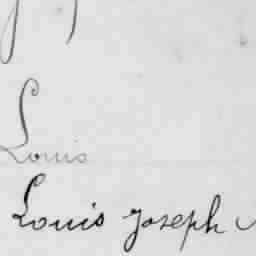 Louis
Louis joseph